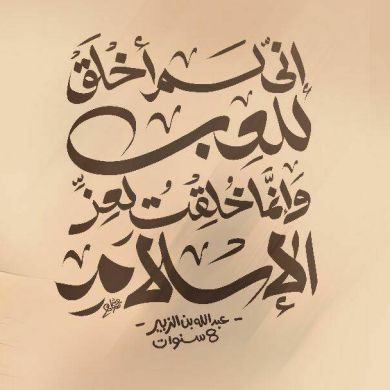 إنّي لم أخلق
للعب
وإنّما خُلِقتُ لعِزِّ
الإسلام
- عبدالله بن الزبير -
8 سنوات